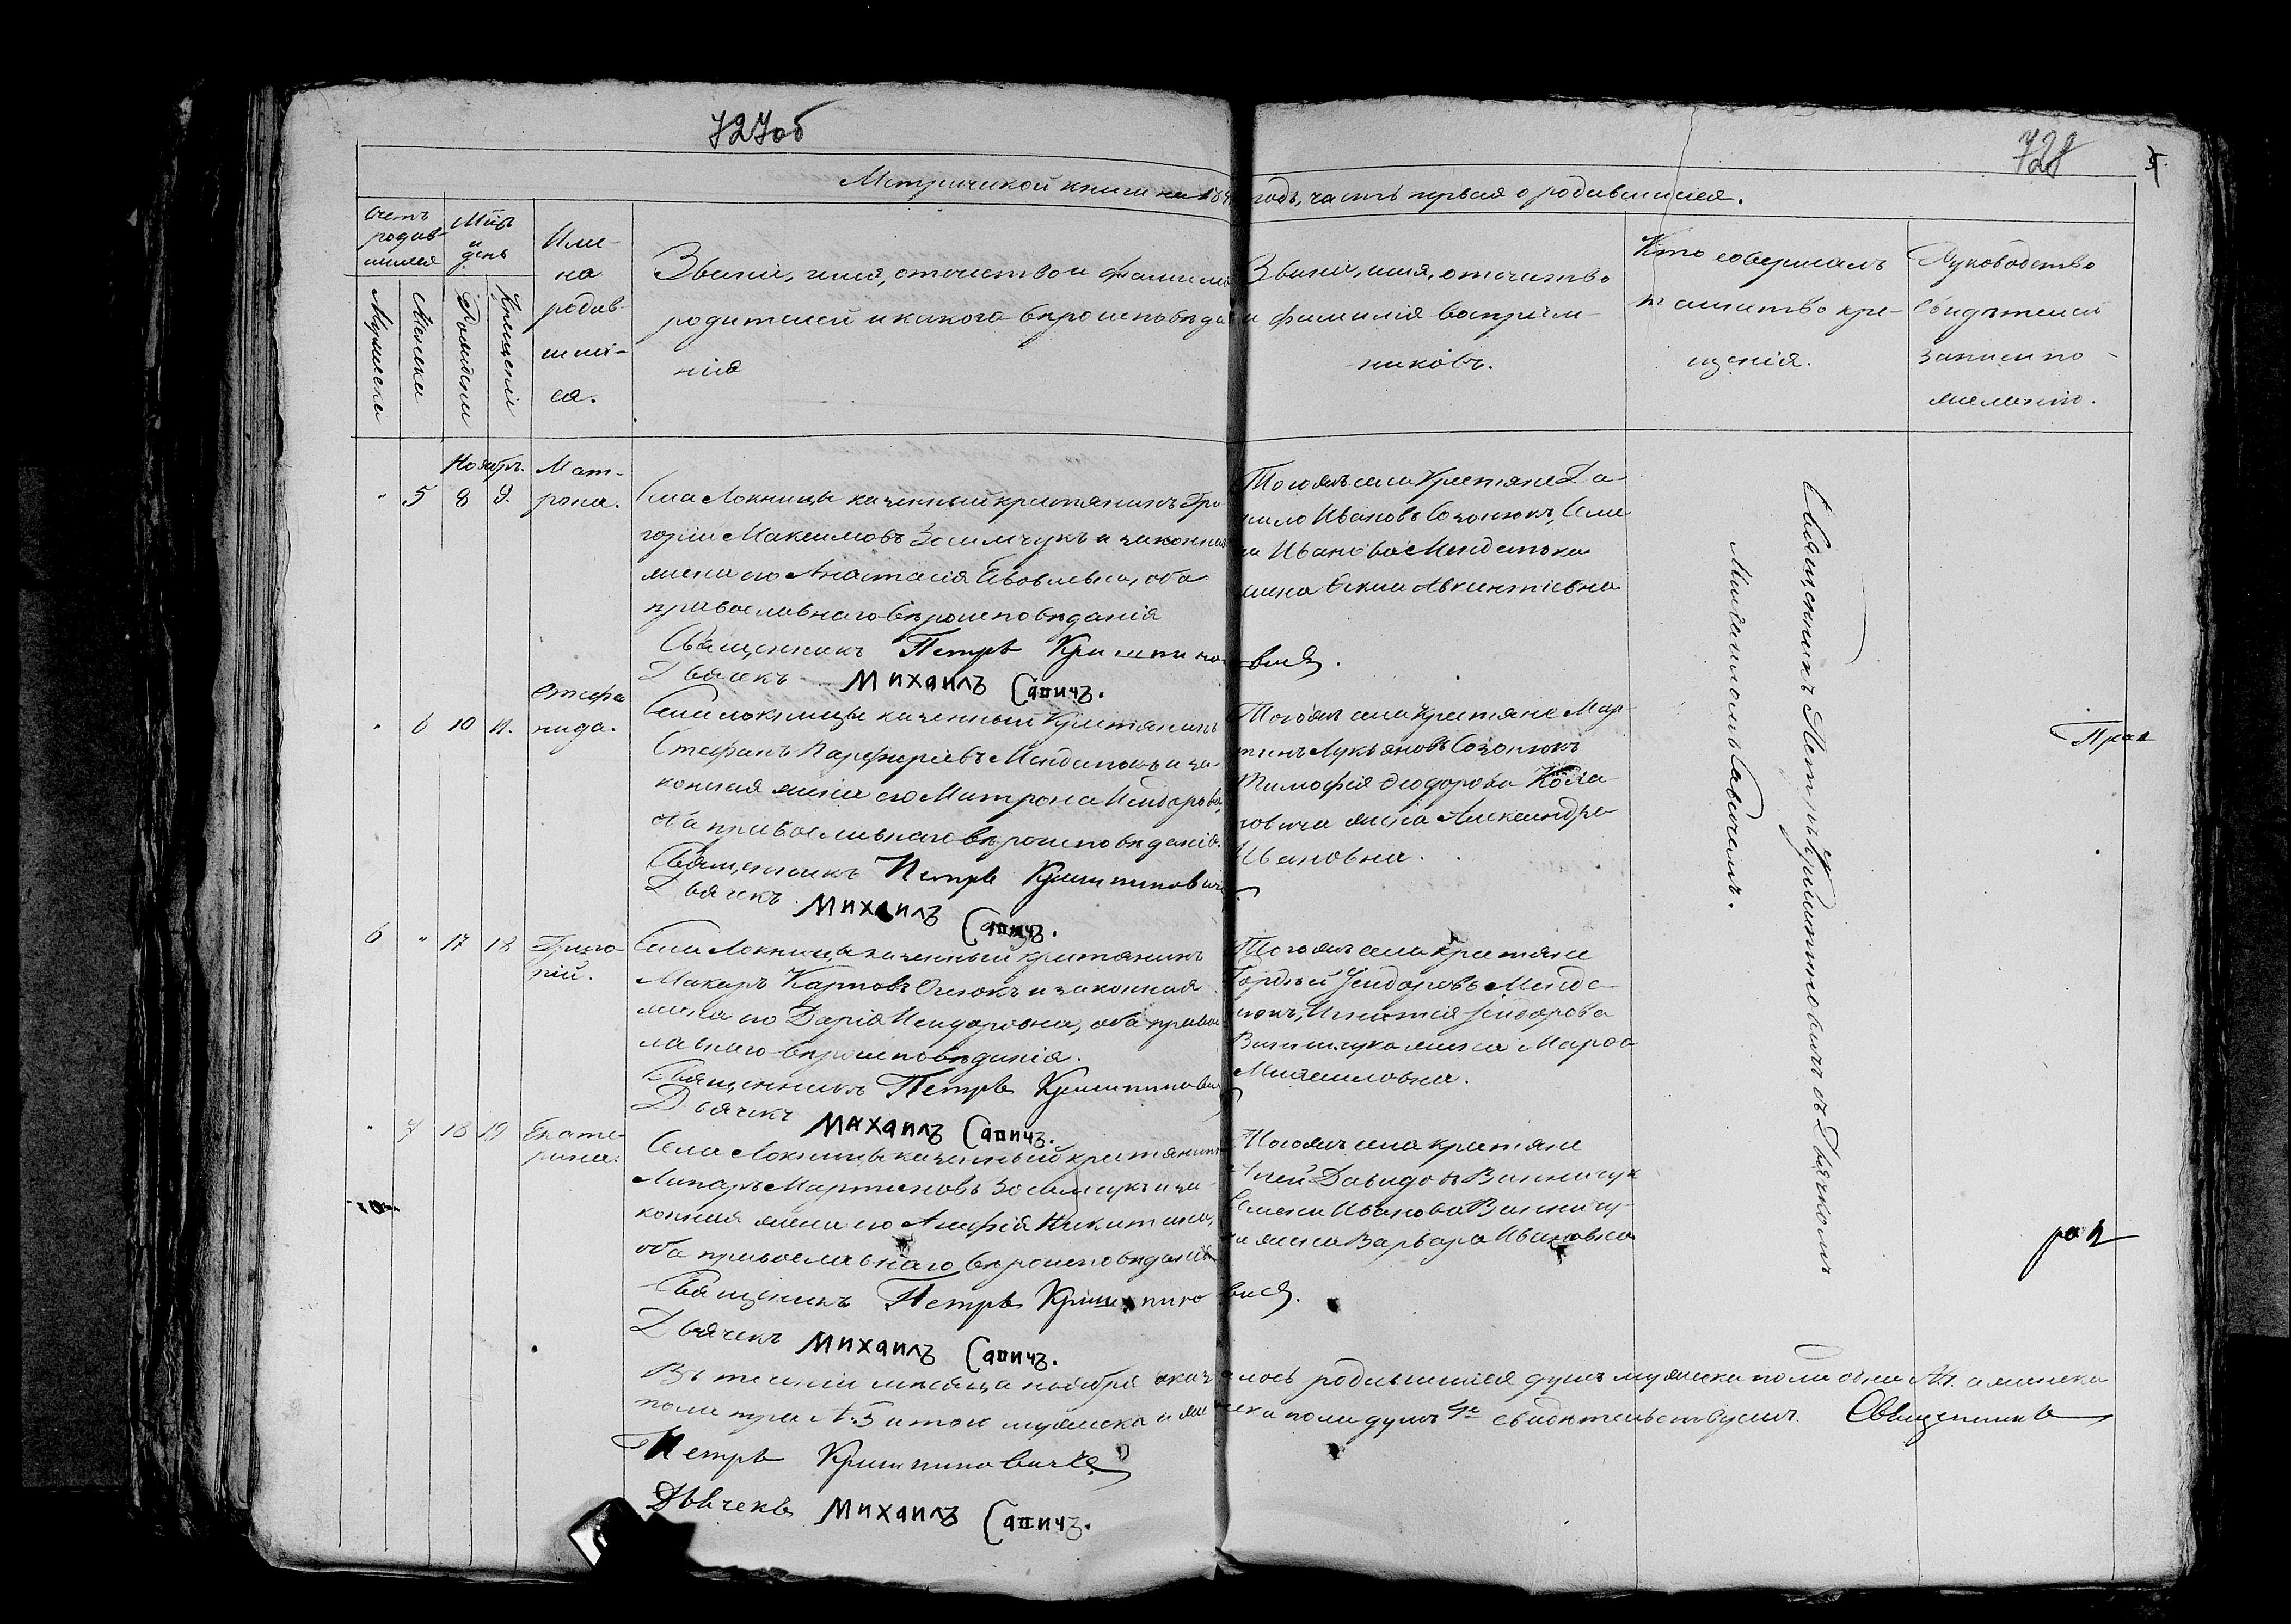 727об
728
Метрической книги на 18 годъ, часть первая о родившихся.
Счетъ родив-шихся
Мѣс. и день
Име-на родив-ших-ся.
Мужеска
Женска
Рожденія
Крещенія
Званіе, имя, отчество и фамилія
родителей и какого вѣроисповѣда
нія
Званіе, имя, отчество
и фамилія воспріем-
никовъ.
Кто совершалъ
таинство кре-
щенія.
Рукоподство
свидѣтелей
записи по
желанію.
Ноябрь.
" 5 8 9. Мат-
рона.
Села Локницы казенный крестьянинъ Гри
горій Максимовъ Зосимчукъ и законная
жена его Анастасія Яковлевна, оба
православнаго вѣроисповѣданія
Священникъ Петръ Криштиновичъ.
Дьячекъ Михаилъ Сапичъ.
Тогожъ села Крестьяне Да-
нило Ивановъ Созонюкъ, Семе
на Иванова Менделюка
жена Авксентіевна
" 6 10 11. Стефа
нида.
Села Локницы казенный Крестьянинъ
Стефанъ Парфиріевъ Менделюкъ и за-
конная жена его Матрона Исидорова,
оба православнаго вѣроисповѣданія.
Священникъ Петръ Криштиновичъ
Дьячекъ Михаилъ Сапичъ.
Тогожъ села Крестьяне Мар-
тинъ Лукьяновъ Созонюкъ
Тимофея Феодорова
жена Александра
Ивановна.
6 " 17 18 Григо-
рій.
Села Локницы казенный крестьянинъ
Макаръ Карповъ и законная
жена его Дарія Исидоровна, оба право
славнаго вѣроисповѣданія.
Священникъ Петръ Криштинович
Дьячекъ Михаилъ Сапичъ.
Тогожъ села крестьяне
Гордѣй Исидоровъ Менде-
люкъ, Игнатія Исидорова
Винничука жена Марфа
Михаиловна.
" 7 18 19 Екате-
рина.
Села Локницы казенный крестьянинъ
Мартиновъ Зосимчукъ и за-
конная жена его Агафія Никитина,
оба православнаго вѣроисповѣданія
Священникъ Петръ Криштиновичъ.
Дьячекъ Михаилъ Сапичъ.
Тогожъ села крестьяне
Давидовъ Винничук
Семена Иванова Винничу-
ка жена Варвара Ивановна
Священникъ Петръ Криштиновичъ съ Дьячкомъ
Михаиломъ Сапичемъ.
Въ теченіи мѣсяца ноября оказалось родившихся душъ мужеска пола одна №1. а женска
пола три №3 итого мужеска и женска пола душъ 4е свидѣтельствуемъ. Священникъ
Петръ Криштиновичъ
Дьячекъ Михаилъ Сапичъ.